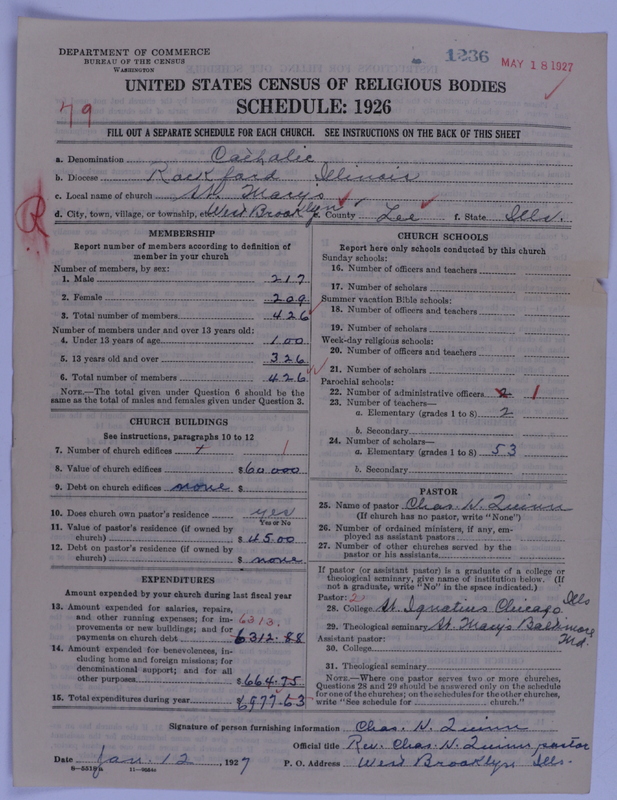 DEPARTMENT OF COMMERCE
BUREAU OF THE CENSUS
WASHINGTON
1236
MAY 18 1927
UNITED STATES CENSUS OF RELIGIOUS BODIES
SCHEDULE: 1926
79
FILL OUT A SEPARATE SCHEDULE FOR EACH CHURCH. SEE INSTRUCTIONS ON THE BACK OF THIS SHEET
a. Denomination Catholic
b. Diocese Rockford Illinois
c. Local name of church St. Mary's
d. City, town, village, or township, etc. West Brooklyn e. County Lee f. State Ills.
R
MEMBERSHIP
Report number of members according to definition of
member in your church
Number of members, by sex:
1. Male 217
2. Female 209
3. Total number of members 426
Number of members under and over 13 years old:
4. Under 13 years of age 100
5. 13 years old and over 326
6. Total number of members 426
NOTE.—The total given under Question 6 should be
the same as the total of males and females given under Question 3.
CHURCH BUILDINGS
See instructions, paragraphs 10 to 12
7. Number of church edifices 1
8. Value of church edifices $60 000
9. Debt on church edifices none $
10. Does church own pastor's residence yes
Yes or No
11. Value of pastor's residence (if owned by
church) $4500
12. Debt on pastor's residence (if owned by
church) $ none
EXPENDITURES
Amount expended by your church during last fiscal year
13. Amount expended for salaries, repairs,
and other running expenses; for im-
provements or new buildings; and for 6313.
payments on church debt $6312.88
14. Amount expended for benevolences, in-
cluding home and foreign missions; for
denominational support; and for all
other purposes $664.75
15. Total expenditures during year $6977.63
CHURCH SCHOOLS
Report here only schools conducted by this church
Sunday schools:
16. Number of officers and teachers
17. Number of scholars
Summer vacation Bible schools:
18. Number of officers and teachers
19. Number of scholars
Week-day religious schools:
20. Number of officers and teachers
21. Number of scholars
Parochial schools:
22. Number of administrative officers 2 1
23. Number of teachers—
a. Elementary (grades 1 to 8) 2
b. Secondary
24. Number of scholars—
a. Elementary (grades 1 to 8) 53
b. Secondary
PASTOR
25. Name of pastor Chas. H. Quinn
(If church has no pastor, write "None")
26. Number of ordained ministers, if any, em-
ployed as assistant pastors
27. Number of other churches served by the
pastor or his assistants
If pastor (or assistant pastor) is a graduate of a college or
theological seminary, give name of institution below. (If
not a graduate, write "No" in the space indicated.)
Pastor: 2
28. College St. Ignatius Chicago Ills
29. Theological seminary St. Marys Baltimore Md.
Assistant pastor:
30. College
31. Theological seminary
NOTE.—Where one pastor serves two or more churches,
Questions 28 and 29 should be answered only on the schedule
for one of the churches; on the schedules for the other churches,
write "See schedule for church."
Signature of person furnishing information Chas. H. Quinn
Official title Rev. Chas. H. Quinn, pastor
Date Jan. 12, 1927 P. O. Address West Brooklyn Ills.
8-5518a 11-9684